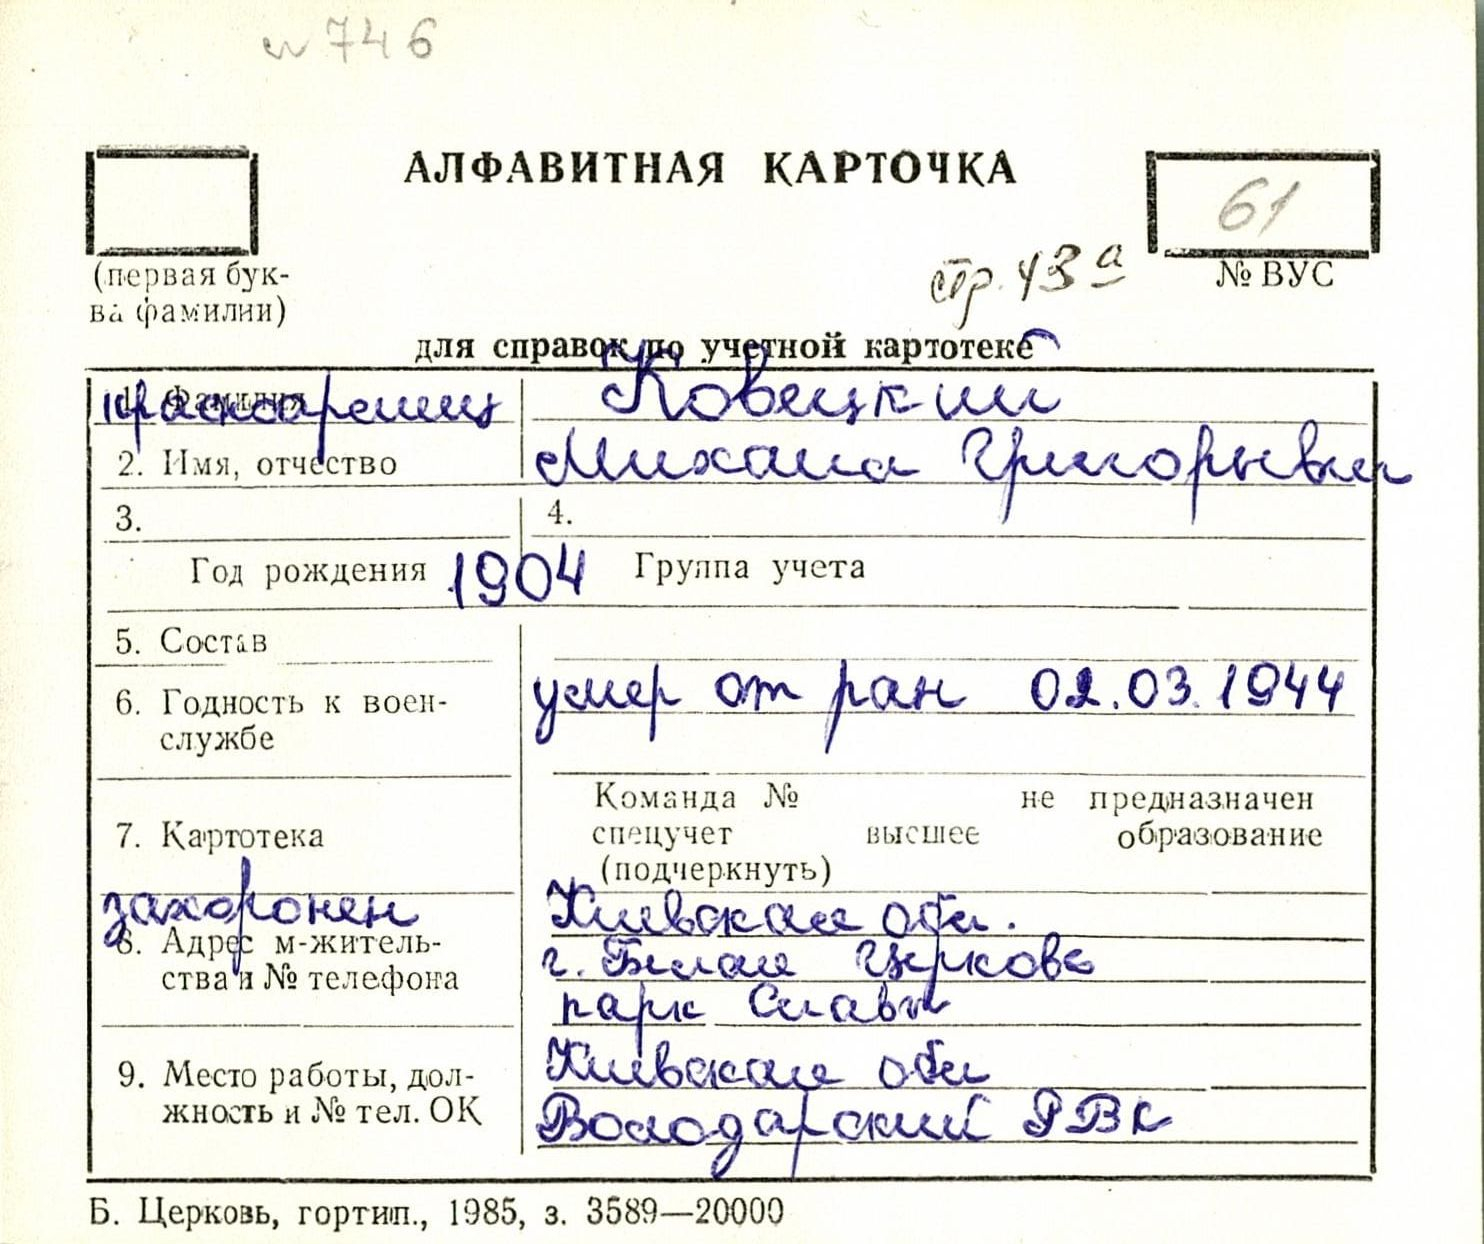 и 746
АЛФАВИТНАЯ КАРТОЧКА
61
(первая бук-
ва фамилии)
стр. 43а
№ ВУС
для справок по учетной картотеке
1. Фамилия
красноармеец Ковецкий
2. Имя, отчество Михаил Григорьевич
3. 4.
Год рождения 1904 Группа учета
5. Состав
6. Годность к воен-
службе
умер от ран 02.03.1944
Команда № не предназначен
7. Картотека
спецучет высшее образование
(подчеркнуть)
захоронен Киевская обл.
8. Адрес м-житель-
ства и № телефона
г. Белая Церковь
парк Славы
9. Место работы, дол-
жность и № тел. ОК
Киевская обл
Володарский РВК
Б. Церковь, гортип., 1985, з. 3589—20000